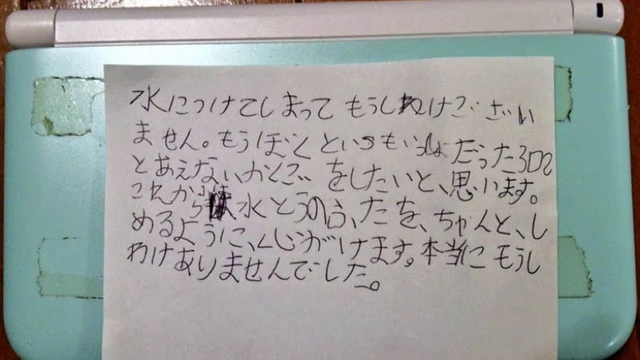 水につけてしまって もうしわけござい
ません。もうぼくといつもいっしょだった3DS
とあえないかくごをしたいと、思います。
これからは水とうのふたを、ちゃんと、し
めるように、くじがけます。本当にもうし
わけありませんでした。